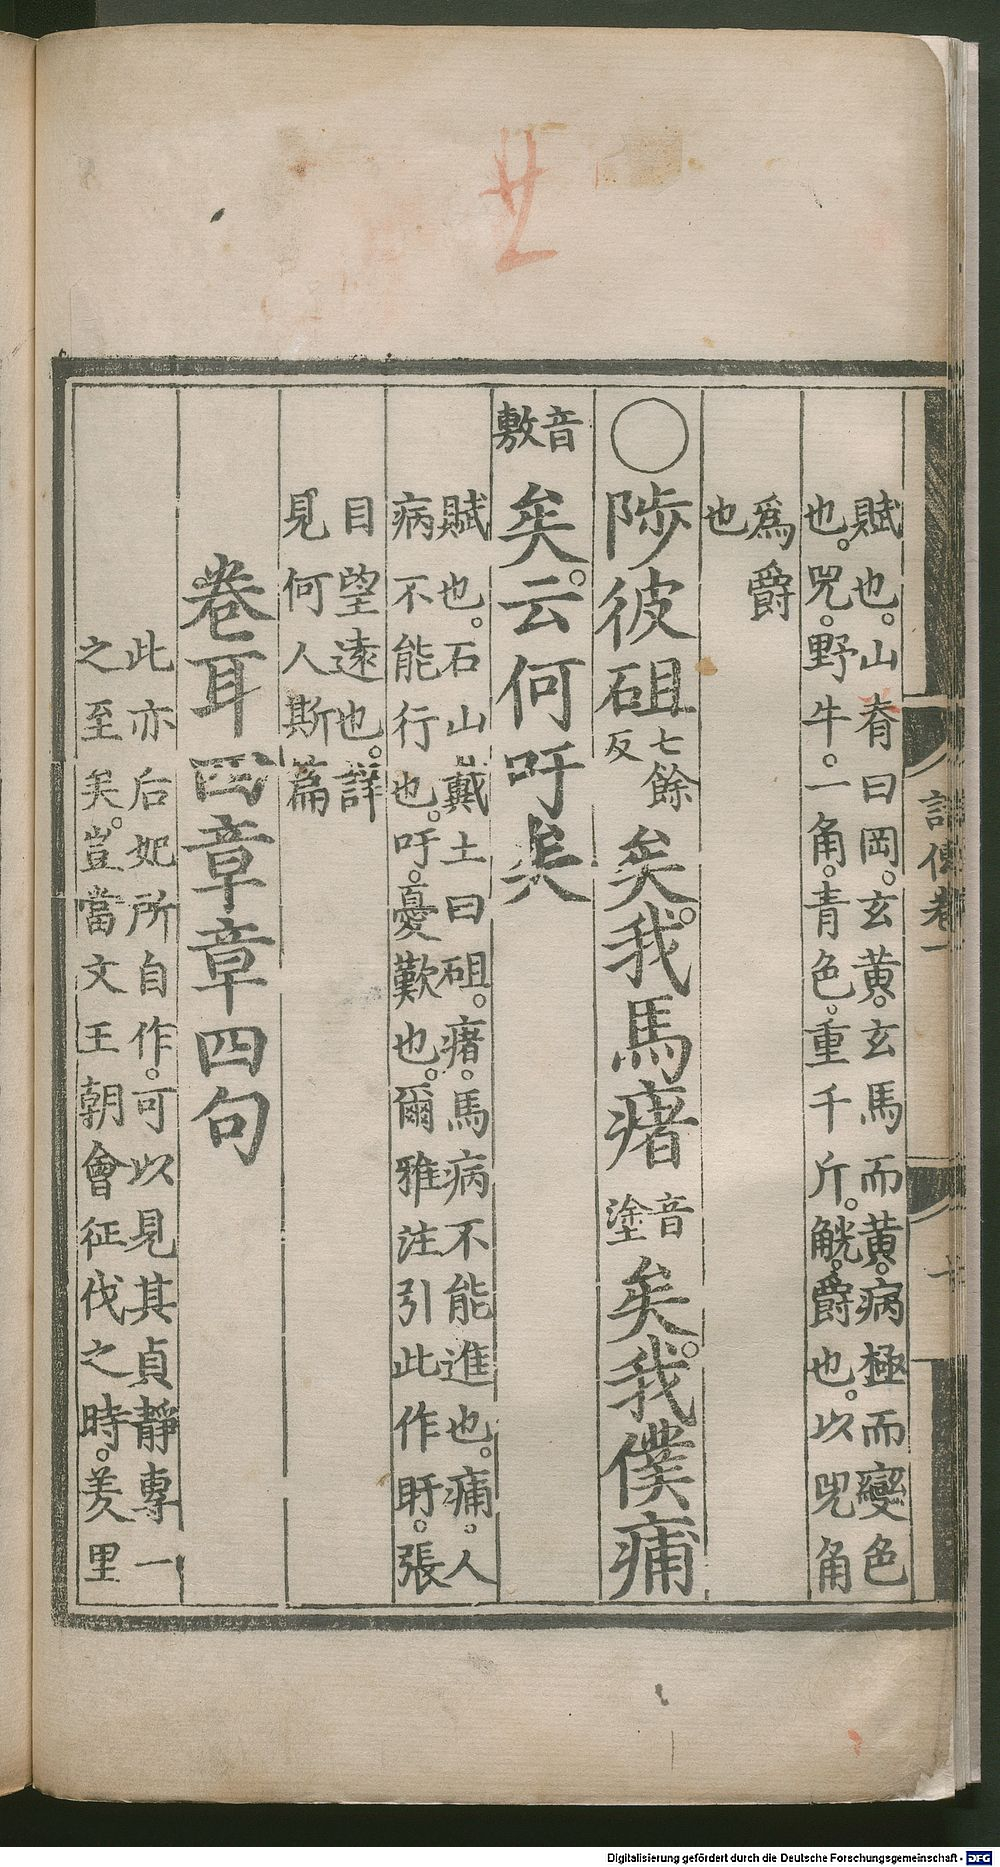 賦也。山脊曰岡。玄黃。玄馬而黃。病極而變色
也。兕。野牛。一角。青色。重千斤。觥。爵也。以兕角
爲爵
也
○陟彼砠七餘反矣。我馬瘏音塗矣。我僕痡
音敷矣。云何吁矣
賦也。石山戴土曰砠。瘏。馬病不能進也。痡。人
病不能行也。吁。憂歎也。爾雅注引此作盱。張
目望遠也。詳
見何人斯篇
卷耳四章章四句
此亦后妃所自作。可以見其貞靜專一
之至矣。豈當文王朝會征伐之時。羑里
詩傳卷一
廿
Digitalisierung gefördert durch die Deutsche Forschungsgemeinschaft - DFG